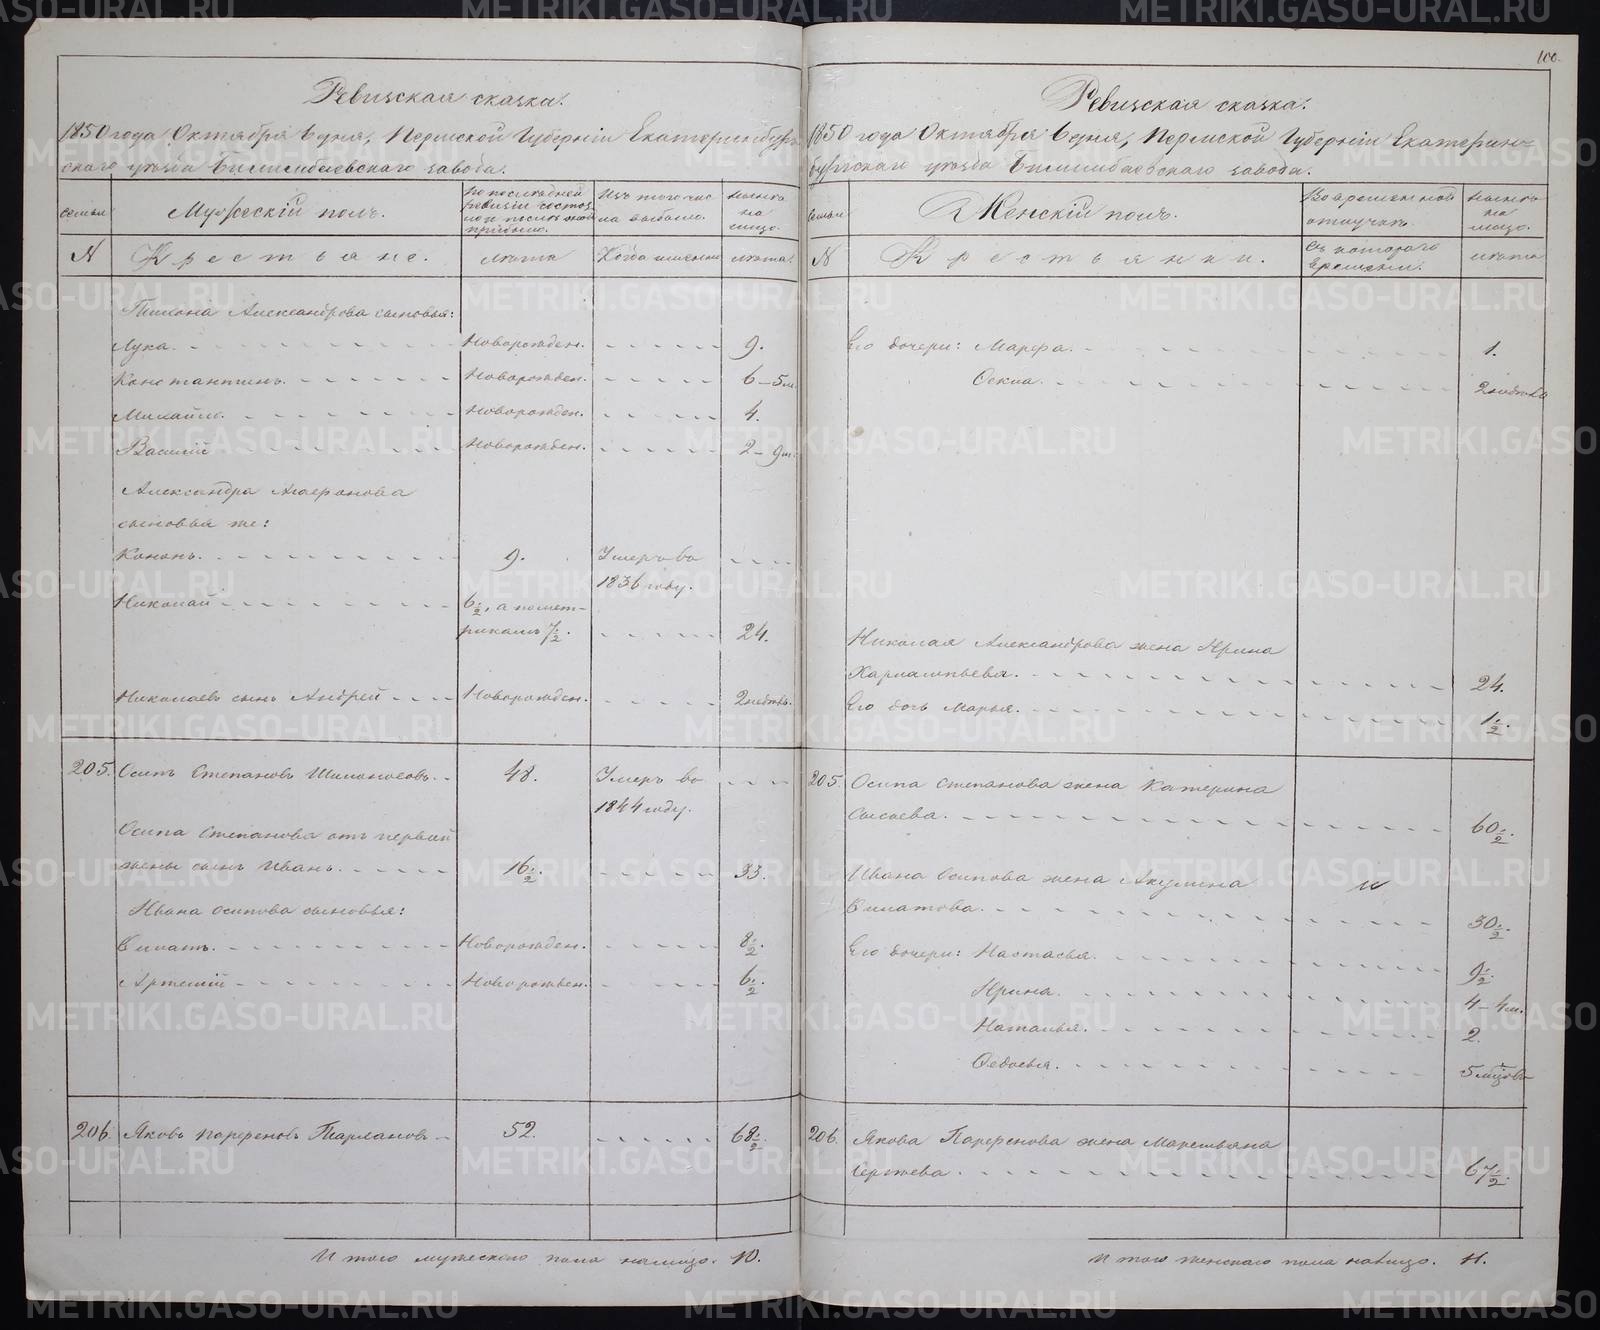 100.
Ревизская сказка.
1850 года Октября 6 дня, Пермской Губерніи Екатеринбург-
скаго уѣзда Билимбаевскаго завода.
семьи
Мужескій полъ.
По последней
ревизіи состоя-
ло и после того
прибыло.
Изъ того чис
ла выбыло.
Нынѣ
на
лицо.
N
Крестьяне.
лѣта
Когда именно
лѣта.
Тихона Александрова сыновья:
Лука. Новорожден. 9.
Константинъ. Новорожден. 6 – 5 м.
Михайло. Новорожден. 4.
Василій Новорожден. 2 – 9 м.
Александра Агафонова
сыновья же:
Кононъ. 9. Умеръ во
1836 году.
Николай 6½, а по мет-
рикамъ 7½. 24.
Николаевъ сынъ Андрей Новорожден. 2 недѣль.
205. Осипъ Степановъ 48. Умеръ во
1844 году.
Осипа Степанова отъ первой
жены сынъ Иванъ. 16½. 33.
Ивана Осипова сыновья:
Новорожден. 8½.
Артемій Новорожден. 6½.
206. Яковъ Парфеновъ 52. 68½.
Итого мужескаго пола налицо. 10.
Ревизская сказка.
1850 года Октября 6 дня, Пермской Губерніи Екатерин-
бургскаго уѣзда Билимбаевскаго завода.
семьи
Женскій полъ.
Во временной
отлучкѣ.
Нынѣ
на
лицо.
N
Крестьянки.
Съ котораго
времени.
лѣта
Его дочери: Марфа. 1.
2 недѣль
Николая Александрова жена Ирина
24.
Его дочь Марья. 1½.
205. Осипа Степанова жена Катерина
Сысоева. 60½.
Ивана Осипова жена Акулина
30½.
Его дочери: Настасья. 9½.
Ирина. 4 – 4 м.
Наталья. 2.
Федосья. 5 мѣсяцовъ
206. Якова Парфенова жена Маремьяна
Сергѣева. 67½.
Итого женскаго пола налицо. 11.
METRIKI.GASO-URAL.RU